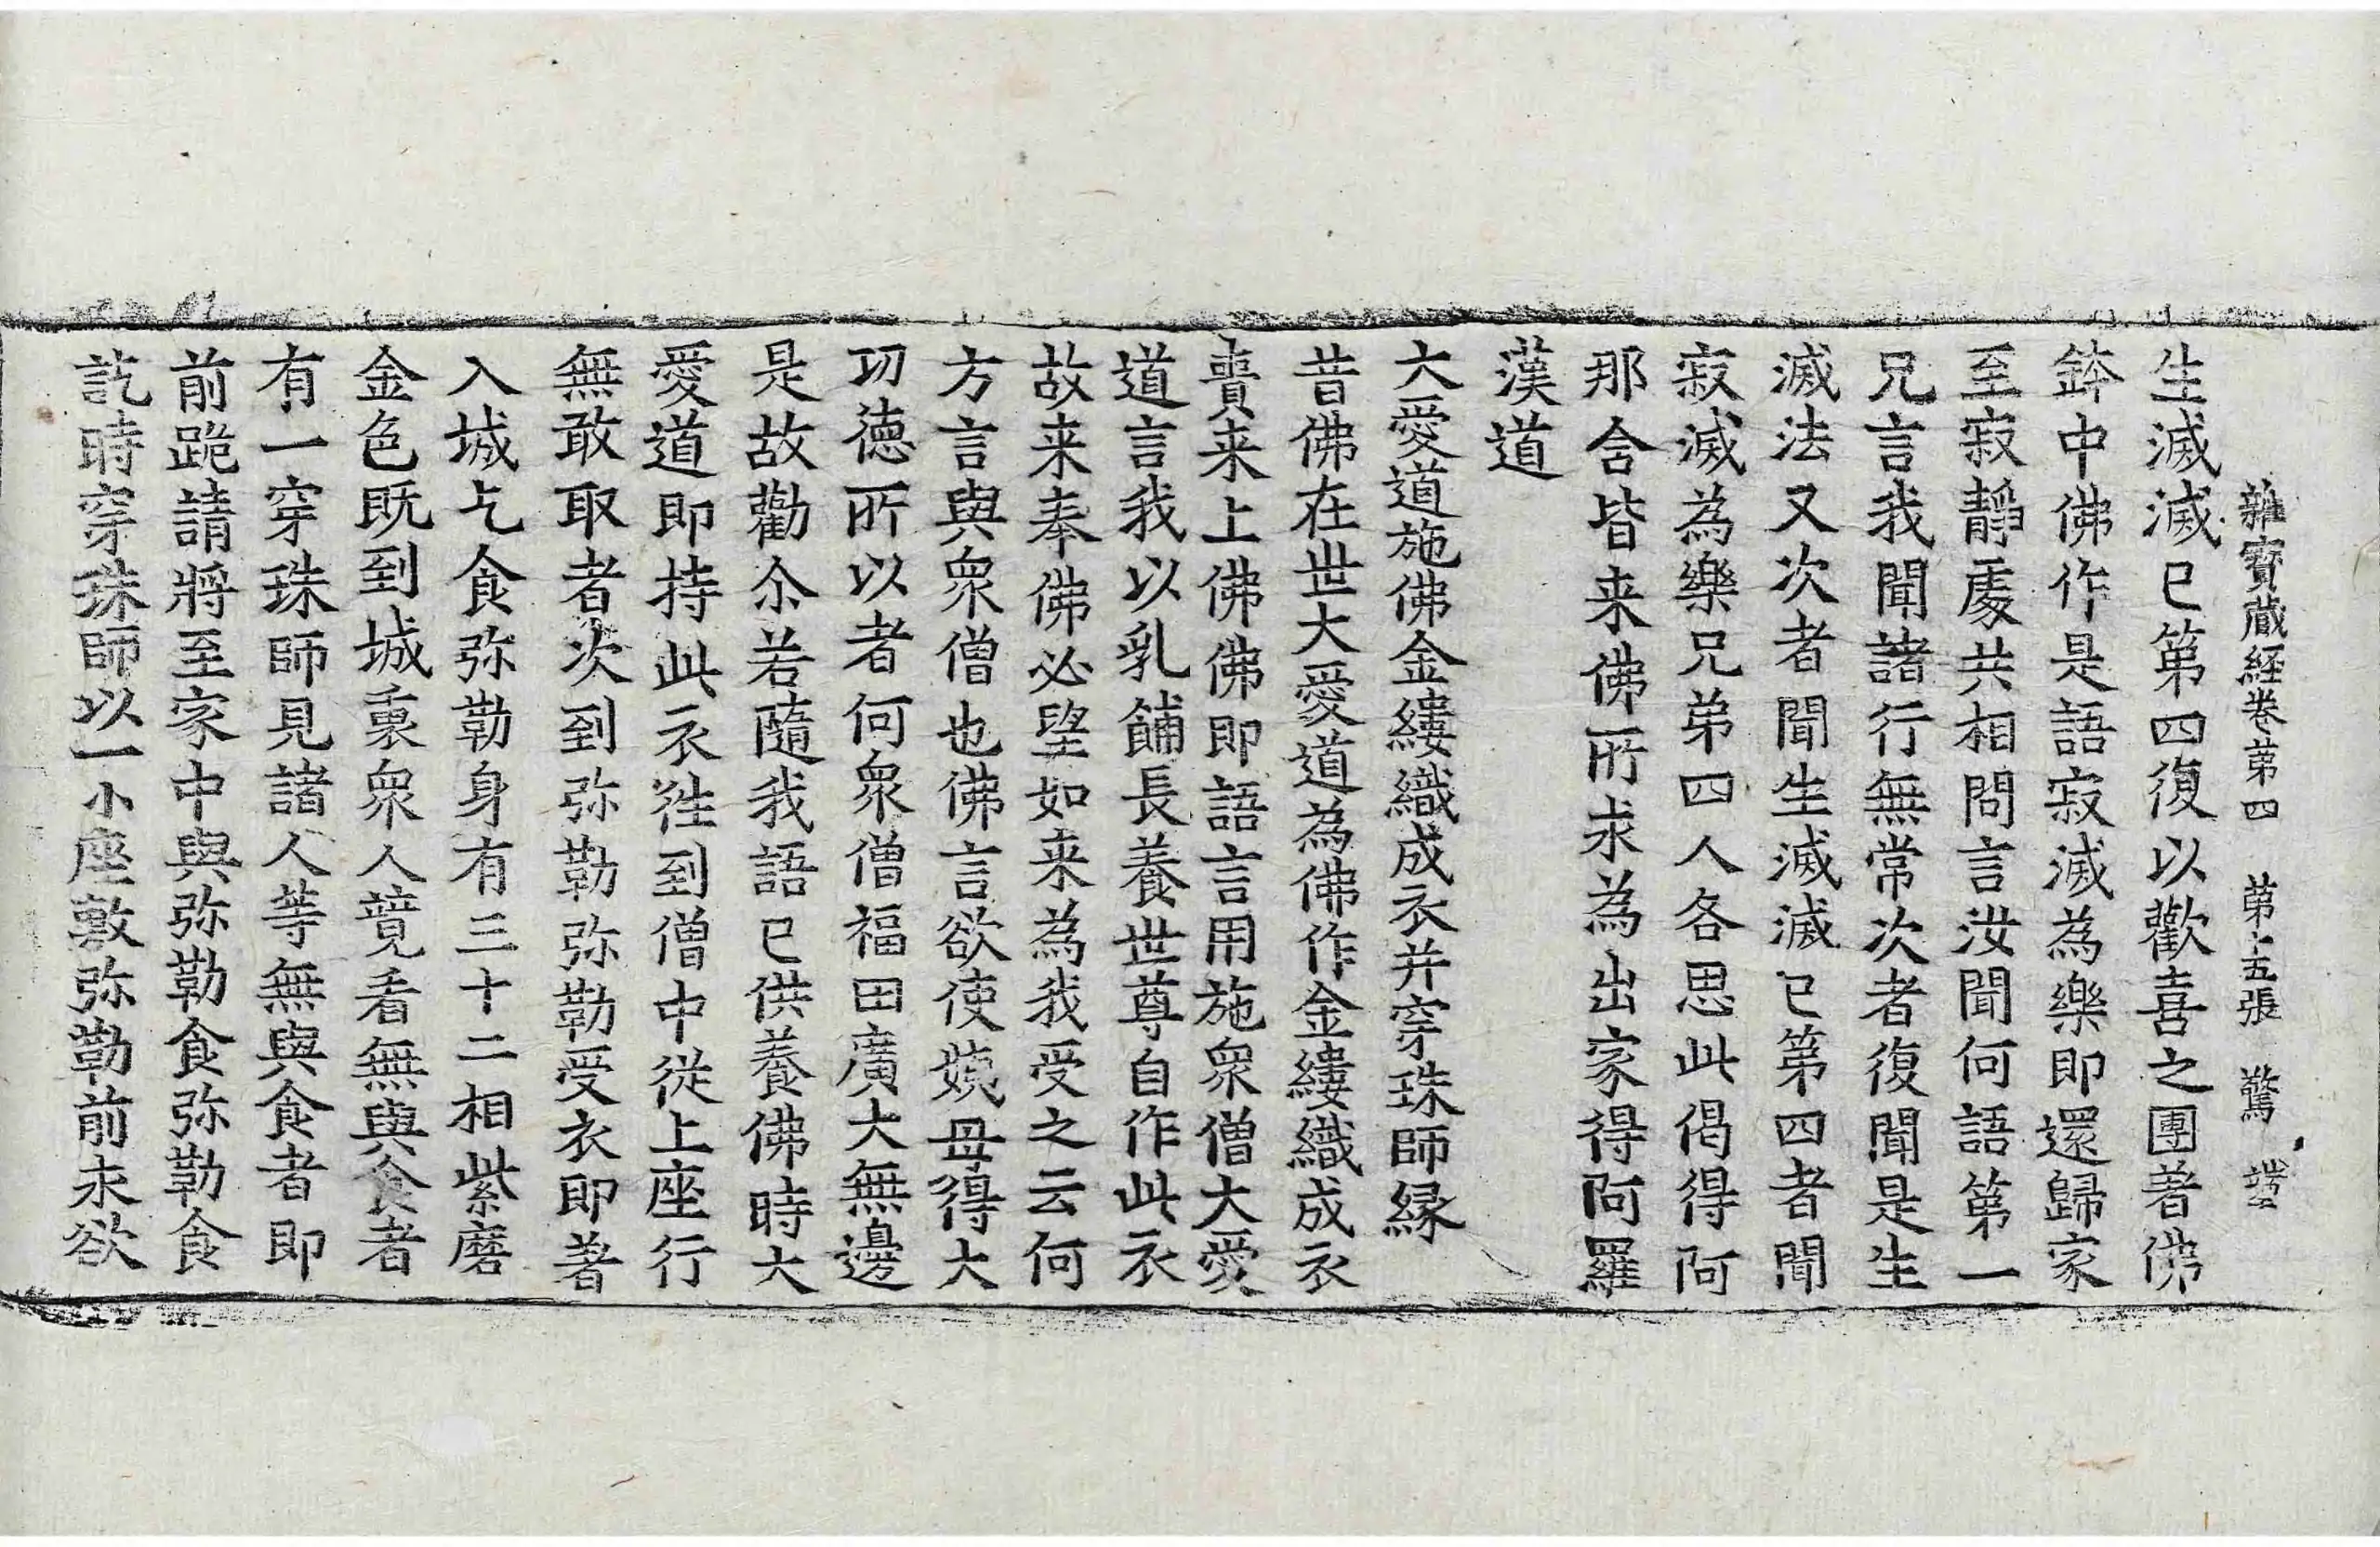 雜寶蔵経卷第四 第十五張 驚
生滅滅已第四復以歡喜之團著佛
鉢中佛作是語寂滅為樂即還歸家
至寂靜處共相問言汝聞何語第一
兄言我聞諸行無常次者復聞是生
滅法又次者聞生滅滅已第四者聞
寂滅為樂兄弟四人各思此偈得阿
那含皆来佛所求為出家得阿羅
漢道
大愛道施佛金縷織成衣并穿珠師縁
昔佛在世大愛道為佛作金縷織成衣
賷来上佛佛即語言用施衆僧大愛
道言我以乳餔長養世尊自作此衣
故来奉佛必望如来為我受之云何
方言與衆僧也佛言欲使姨母得大
功德所以者何衆僧福田廣大無邊
是故勸尒若隨我語已供養佛時大
愛道即持此衣徃到僧中從上座行
無敢取者次到弥勒弥勒受衣即著
入城乞食弥勒身有三十二相紫磨
金色既到城裏衆人竸看無與食者
有一穿珠師見諸人等無與食者即
前跪請將至家中與弥勒食弥勒食
訖時穿珠師以一小座敷弥勒前求欲